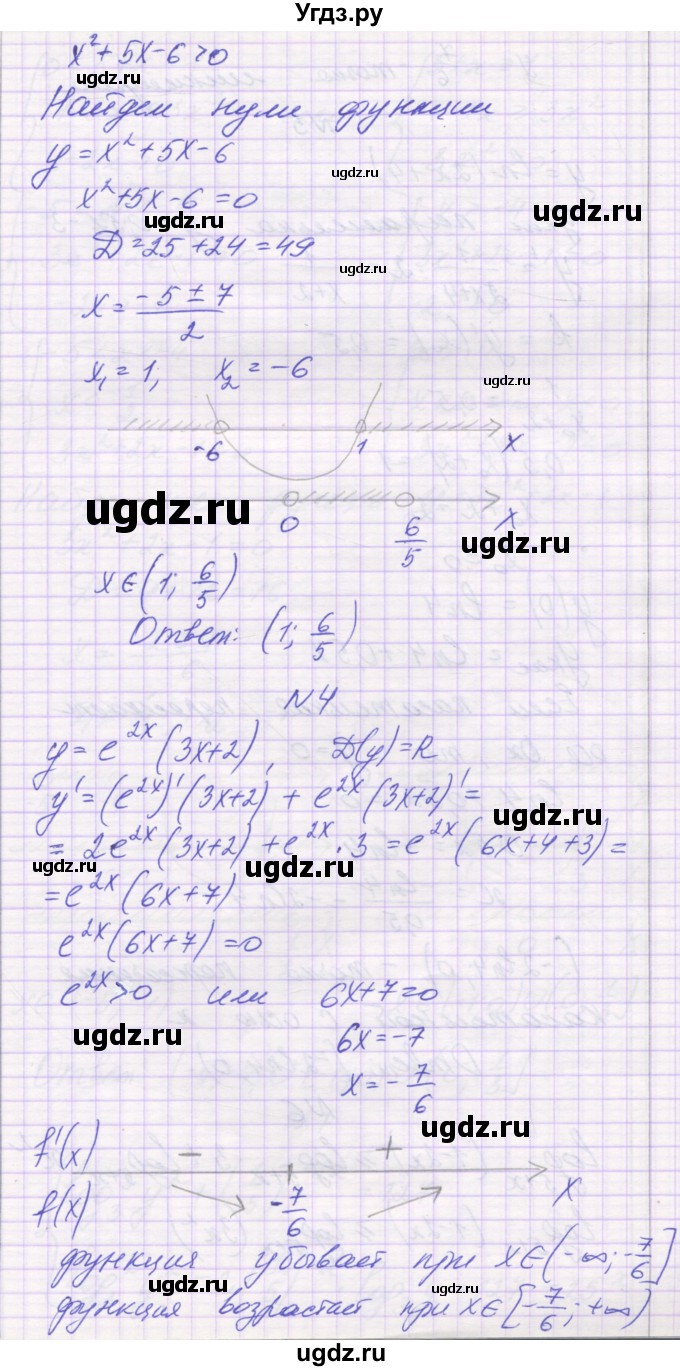 Угдз.ру
x² + 5x - 6 > 0
ugdz.ru
Найдем нули функции
y = x² + 5x - 6
ugdz.ru
x² + 5x - 6 = 0
ugdz.ru ugdz.ru
D = 25 + 24 = 49
ugdz.ru
x = (-5 ± 7)/2
x₁ = 1; x₂ = -6
ugdz.ru
-6 1 x
ugdz.ru
0 6/5 x
ugdz.ru
x ∈ (1; 6/5)
Ответ: (1; 6/5)
N4
y = e^2x (3x+2), D(y) = R
y' = (e^2x)' (3x+2) + e^2x (3x+2)' =
ugdz.ru
= 2e^2x (3x+2) + e^2x · 3 = e^2x (6x+4+3) =
ugdz.ru ugdz.ru
= e^2x (6x+7)
e^2x (6x+7) = 0
e^2x > 0 или 6x+7 = 0
ugdz.ru
6x = -7
x = -7/6
ugdz.ru
f'(x) - +
f(x) -7/6 x
функция убывает при x ∈ (-∞; -7/6]
ugdz.ru
функция возрастает при x ∈ [-7/6; +∞)
ugdz.ru